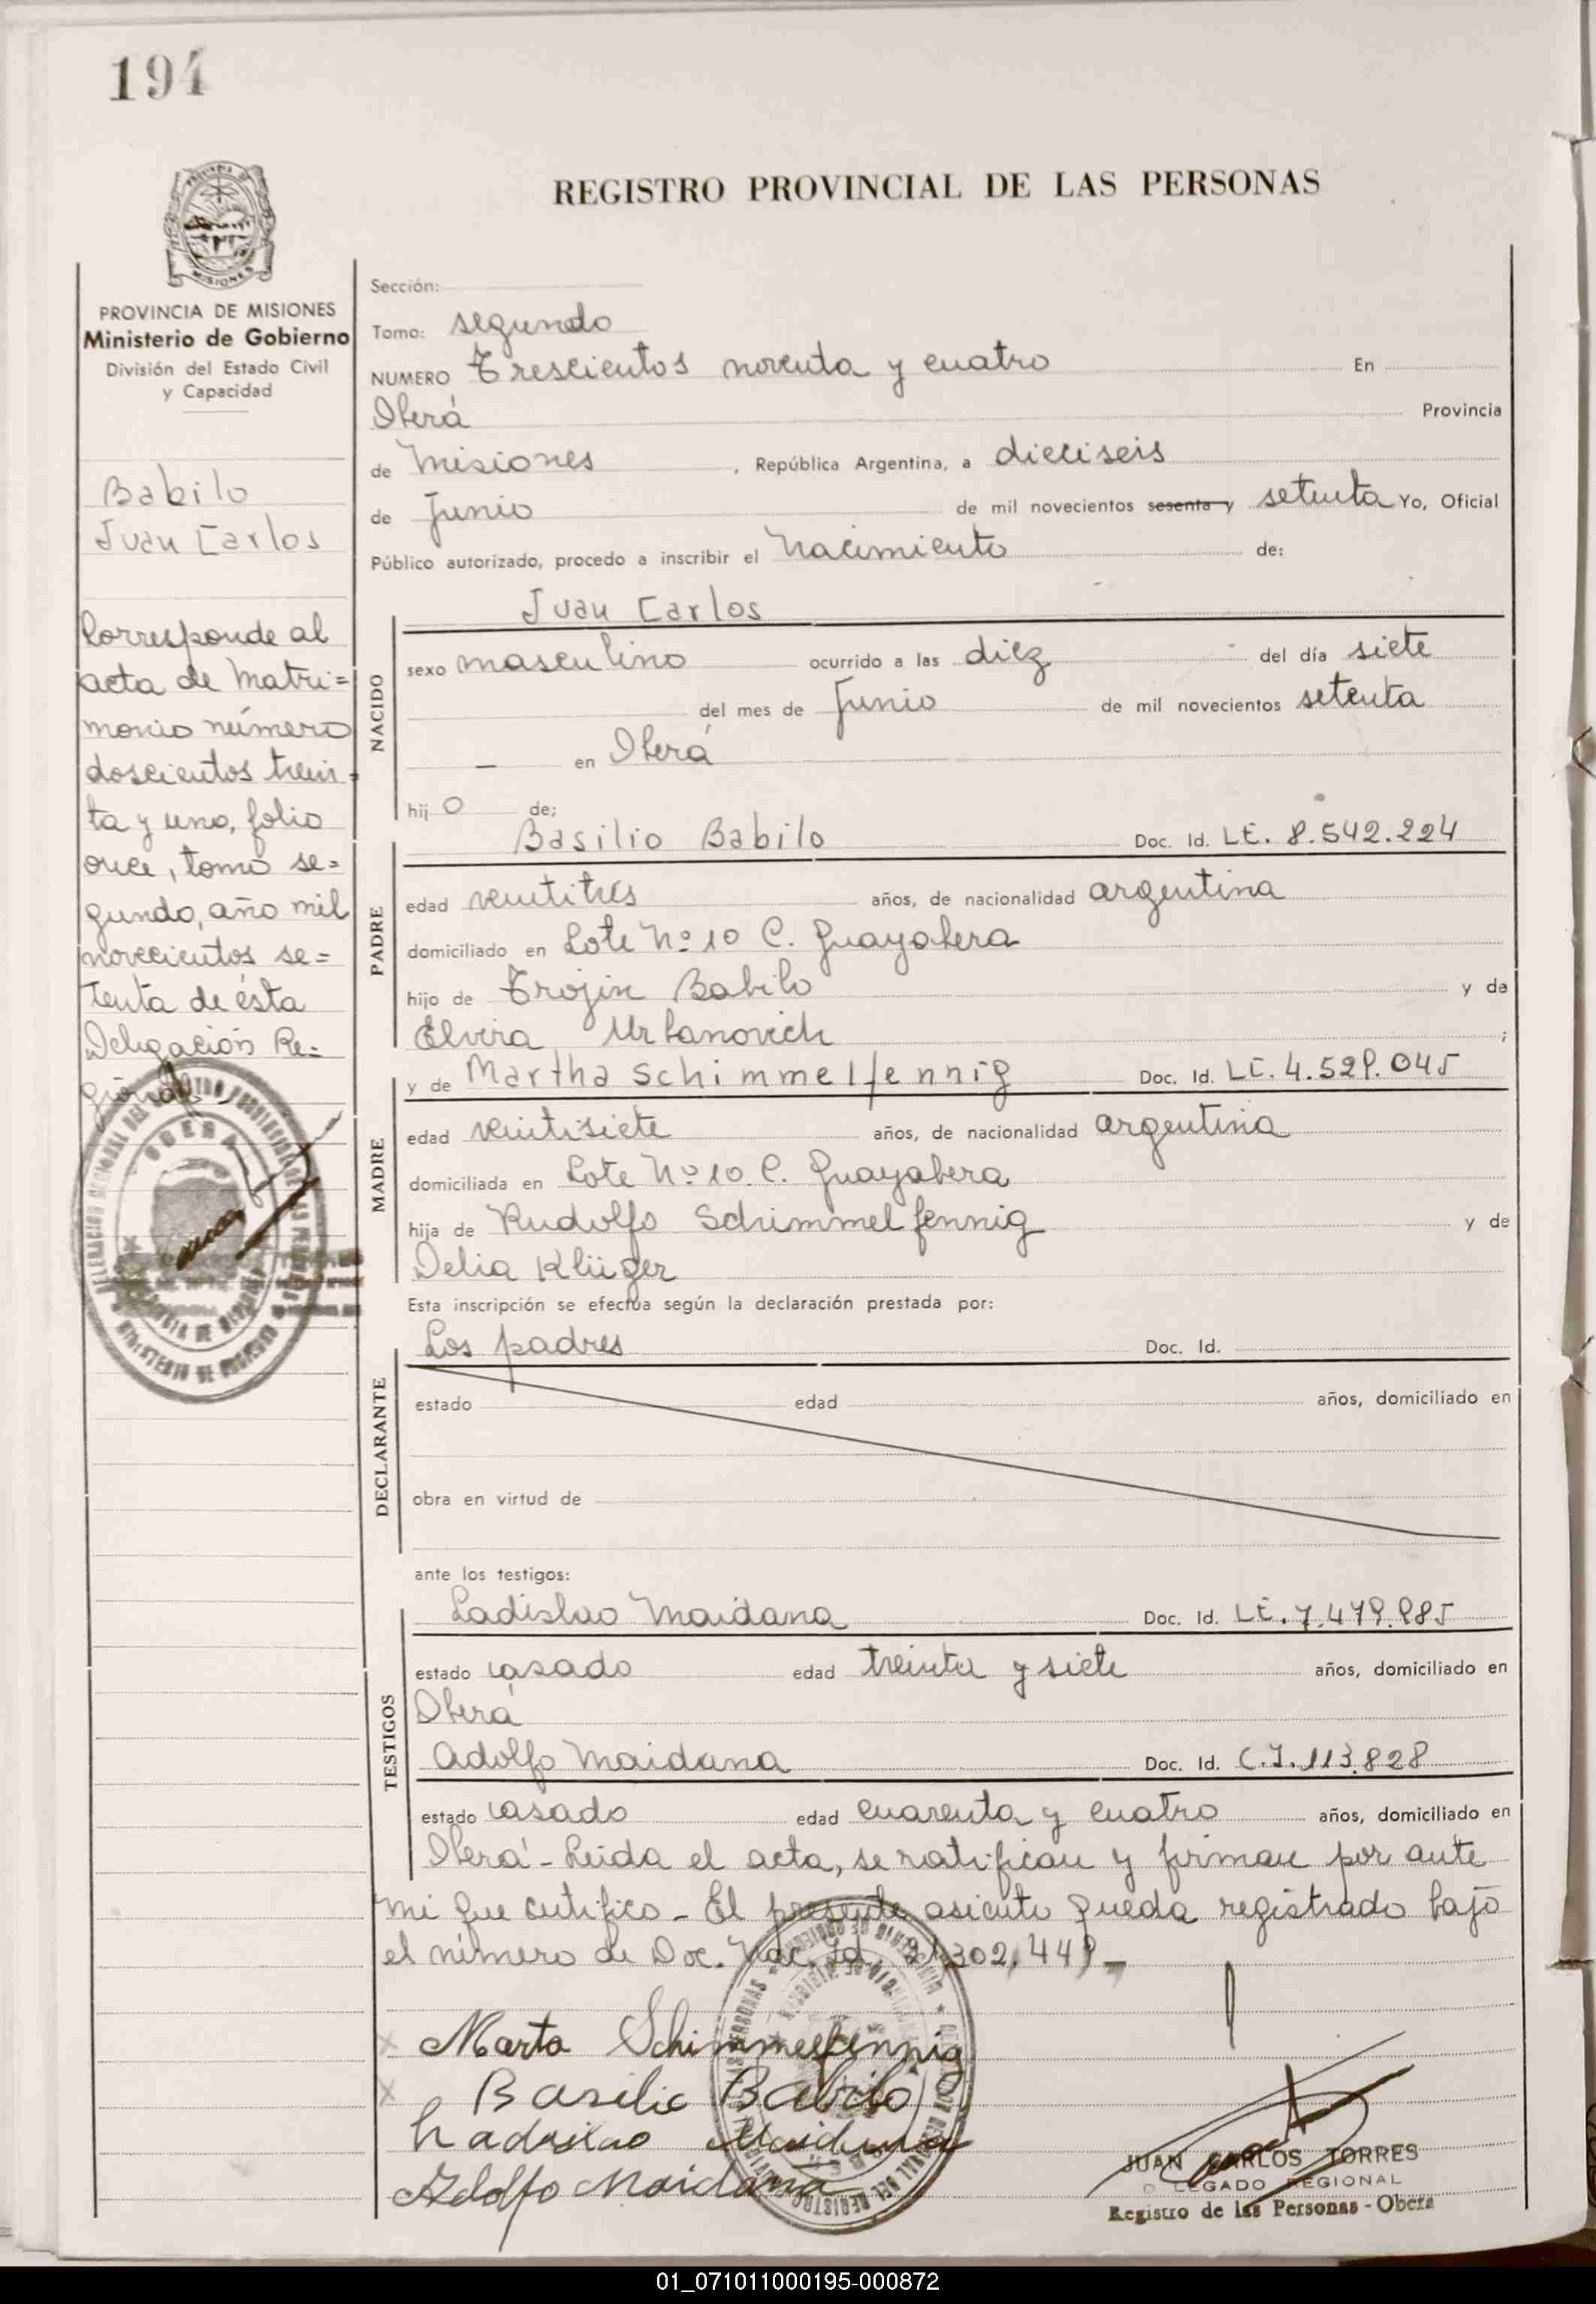 194
REGISTRO PROVINCIAL DE LAS PERSONAS
PROVINCIA DE MISIONES
Ministerio de Gobierno
División del Estado Civil
y Capacidad
Babilo
Juan Carlos
Corresponde al
acta de Matri=
monio número
doscientos trein=
ta y uno, folio
once, tomo se=
gundo, año mil
novecientos se=
tenta de ésta
Delegación Re=
gional
Sección:
Tomo: segundo
NUMERO Trescientos noventa y cuatro En
Oberá Provincia
de Misiones, República Argentina, a dieciseis
de Junio de mil novecientos sesenta y setenta Yo, Oficial
Público autorizado, procedo a inscribir el Nacimiento de:
Juan Carlos
NACIDO
sexo masculino ocurrido a las diez del día siete
del mes de Junio de mil novecientos setenta
— en Oberá
hij o de;
Basilio Babilo Doc. Id. LE. 8.542.224
PADRE
edad veintitrés años, de nacionalidad argentina
domiciliado en Lote Nº 10 C. Guayabera
hijo de Trojin Babilo y de
Elvira Urbanovich ;
y de Martha Schimmelfennig Doc. Id. LC. 4.529.045
MADRE
edad veintisiete años, de nacionalidad argentina
domiciliada en Lote Nº 10. C. Guayabera
hija de Rudolfo Schimmelfennig y de
Delia Klüger
Esta inscripción se efectúa según la declaración prestada por:
Los padres Doc. Id.
DECLARANTE
estado edad años, domiciliado en
obra en virtud de
ante los testigos:
Ladislao Maidana Doc. Id. LE. 7.479.985
TESTIGOS
estado casado edad treinta y siete años, domiciliado en
Oberá
Adolfo Maidana Doc. Id. C.I. 113.828
estado casado edad cuarenta y cuatro años, domiciliado en
Oberá - Leida el acta, se ratifican y firman por ante
mi que certifico - El presente asiento queda registrado bajo
el número de Doc. Nac. Id. 21.302.449 -
Marta Schimmelfennig
Basilio Babilo
Ladislao Maidana
Adolfo Maidana
JUAN CARLOS TORRES
DELEGADO REGIONAL
Registro de las Personas - Oberá
01_071011000195-000872